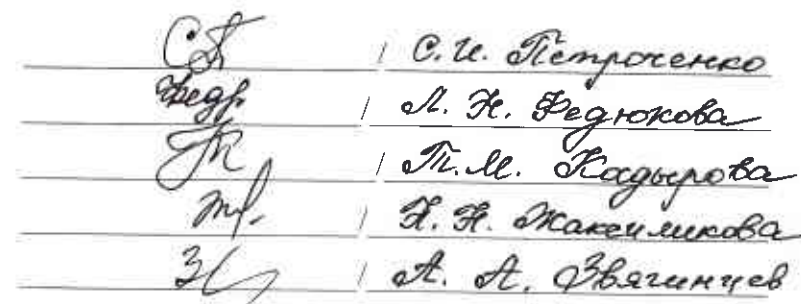 / С. И. Петроченко
Федю / Л. Н. Федюкова
/ Т. М. Кадырова
/ Н. Н. Жаксиликова
/ А. А. Звягинцев